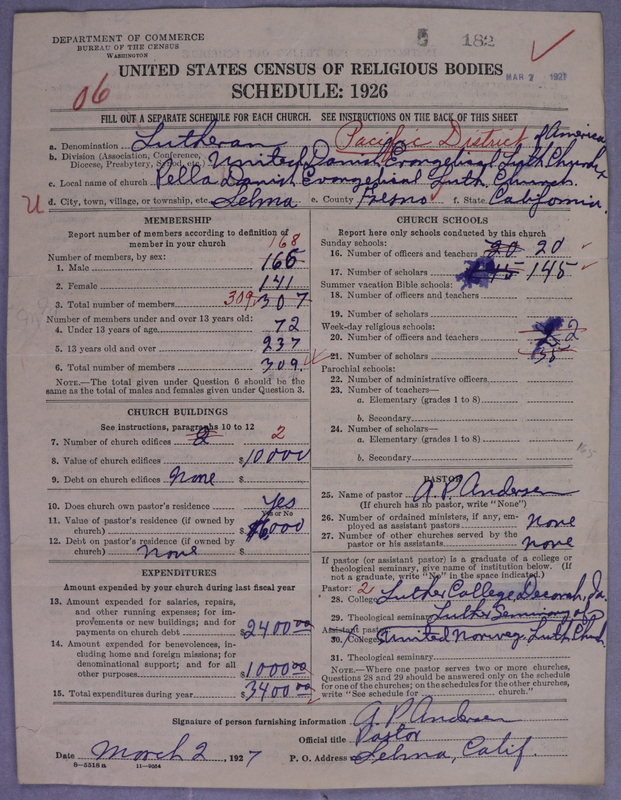 DEPARTMENT OF COMMERCE
BUREAU OF THE CENSUS
WASHINGTON
182
MAR 7 1927
UNITED STATES CENSUS OF RELIGIOUS BODIES
SCHEDULE: 1926
06
FILL OUT A SEPARATE SCHEDULE FOR EACH CHURCH. SEE INSTRUCTIONS ON THE BACK OF THIS SHEET
a. Denomination Lutheran Pacific District of America
b. Division (Association, Conference, Diocese, Presbytery, Synod, etc.) United Danish Evangelical Luth Church
c. Local name of church Pella Danish Evangelical Luth. Church.
U d. City, town, village, or township, etc. Selma e. County Fresno f. State California.
MEMBERSHIP
Report number of members according to definition of member in your church
Number of members, by sex:
168
1. Male 166
2. Female 141
3. Total number of members 309 307
Number of members under and over 13 years old:
4. Under 13 years of age 72
5. 13 years old and over 237
6. Total number of members 309.
NOTE.—The total given under Question 6 should be the same as the total of males and females given under Question 3.
CHURCH BUILDINGS
See instructions, paragraphs 10 to 12
7. Number of church edifices 2 2
8. Value of church edifices $10000
9. Debt on church edifices None $
10. Does church own pastor's residence Yes
Yes or No
11. Value of pastor's residence (if owned by church) $6000
12. Debt on pastor's residence (if owned by church) None $
EXPENDITURES
Amount expended by your church during last fiscal year
13. Amount expended for salaries, repairs, and other running expenses; for improvements or new buildings; and for payments on church debt $2400 00
14. Amount expended for benevolences, including home and foreign missions; for denominational support; and for all other purposes $1000 00
15. Total expenditures during year $3400 00
CHURCH SCHOOLS
Report here only schools conducted by this church
Sunday schools:
16. Number of officers and teachers 20 20
17. Number of scholars 145 145
Summer vacation Bible schools:
18. Number of officers and teachers
19. Number of scholars
Week-day religious schools:
20. Number of officers and teachers 2
21. Number of scholars 35
Parochial schools:
22. Number of administrative officers
23. Number of teachers—
a. Elementary (grades 1 to 8)
b. Secondary
24. Number of scholars—
a. Elementary (grades 1 to 8)
b. Secondary
PASTOR
25. Name of pastor A. P. Andersen
(If church has no pastor, write "None")
26. Number of ordained ministers, if any, employed as assistant pastors None
27. Number of other churches served by the pastor or his assistants None
If pastor (or assistant pastor) is a graduate of a college or theological seminary, give name of institution below. (If not a graduate, write "No" in the space indicated.)
Pastor: 2
28. College Luther College Decorah, Ia.
29. Theological seminary Luther Seminary of
Assistant pastor:
30. College United Norweg. Luth Church.
31. Theological seminary
NOTE.—Where one pastor serves two or more churches, Questions 28 and 29 should be answered only on the schedule for one of the churches; on the schedules for the other churches, write "See schedule for church."
Signature of person furnishing information A. P. Andersen
Official title Pastor
Date March 2, 1927 P. O. Address Selma, Calif.
8—5318 a 11—9084